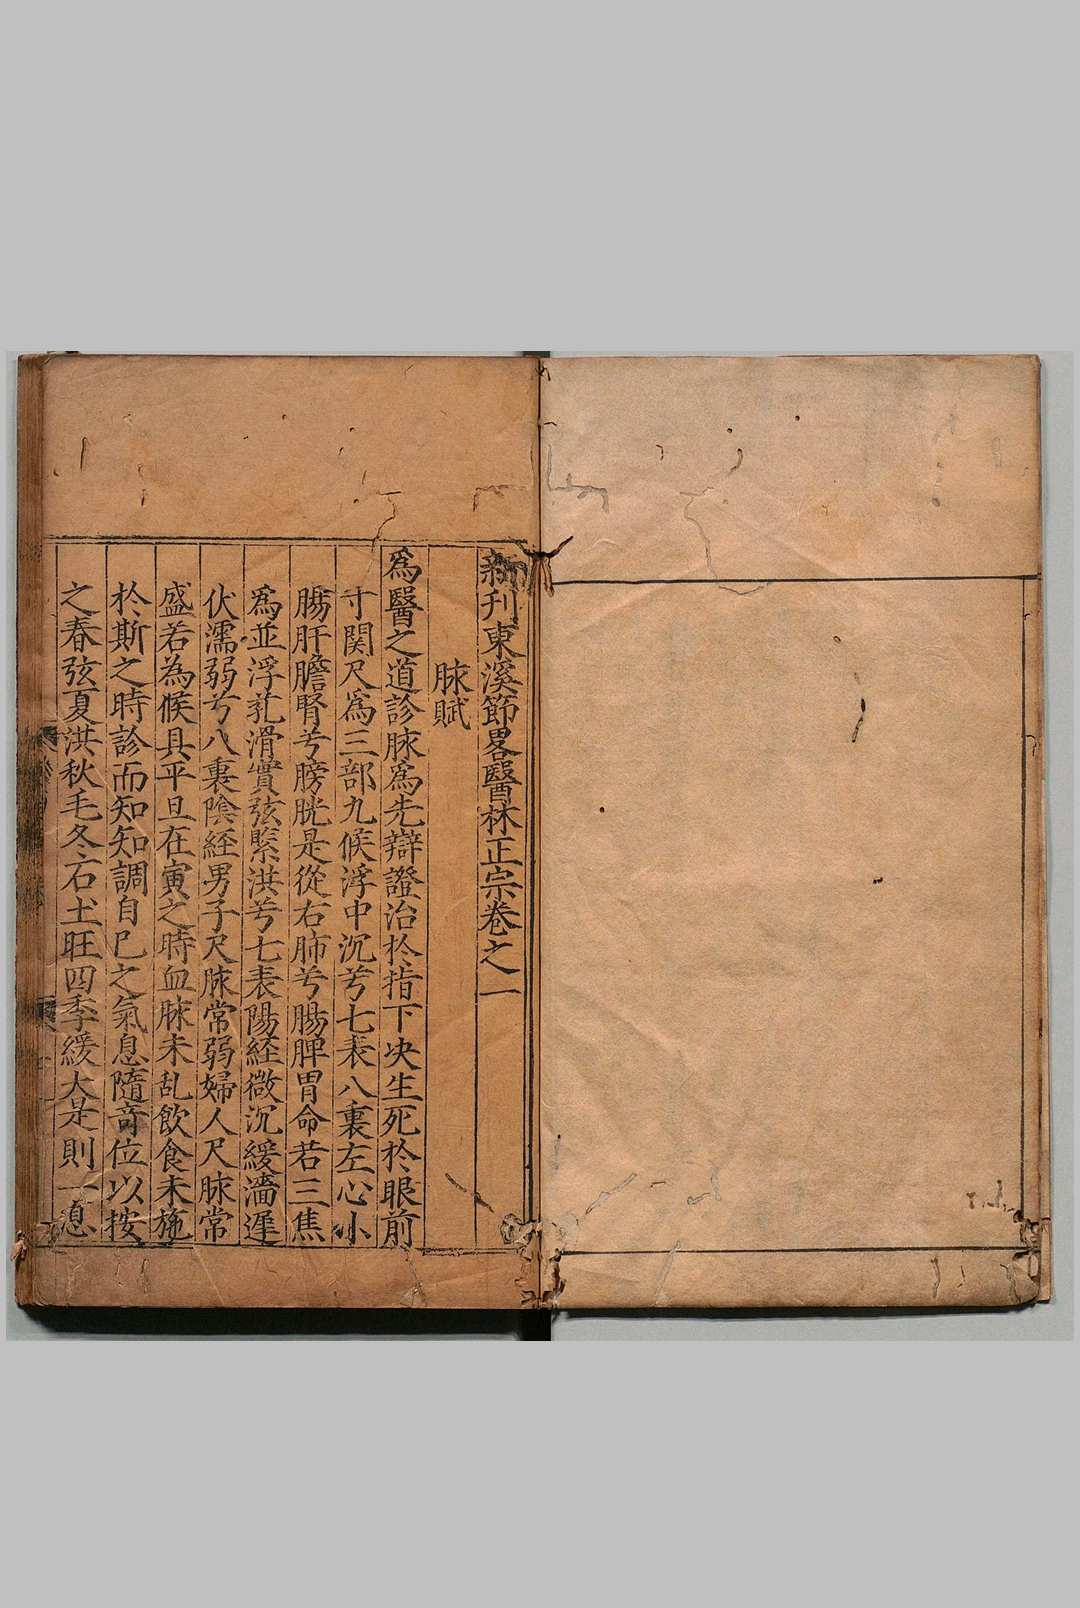 新刋東溪節畧醫林正宗卷之一
脉賦
爲醫之道診脉爲先辯證治於指下决生死於眼前
寸関尺爲三部九候浮中沉兮七表八裏左心小
膓肝膽腎兮膀胱是從右肺兮腸脾胃命若三焦
爲並浮芤滑實弦緊洪兮七表陽経微沉緩濇遲
伏濡弱兮八裏陰経男子尺脉常弱婦人尺脉常
盛若為候具平旦在寅之時血脉未乱飲食未施
於斯之時診而知知調自已之氣息隨竒位以按
之春弦夏洪秋毛冬石土旺四季緩大是則一息